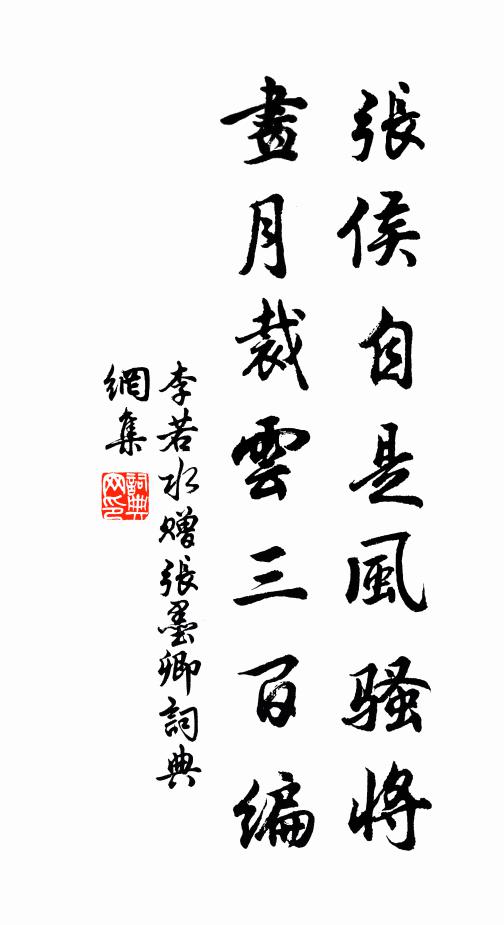 張侯自是風骚將
畫月裁雲三百编
李若水赠張墨卿詞典
網集
詞典網印